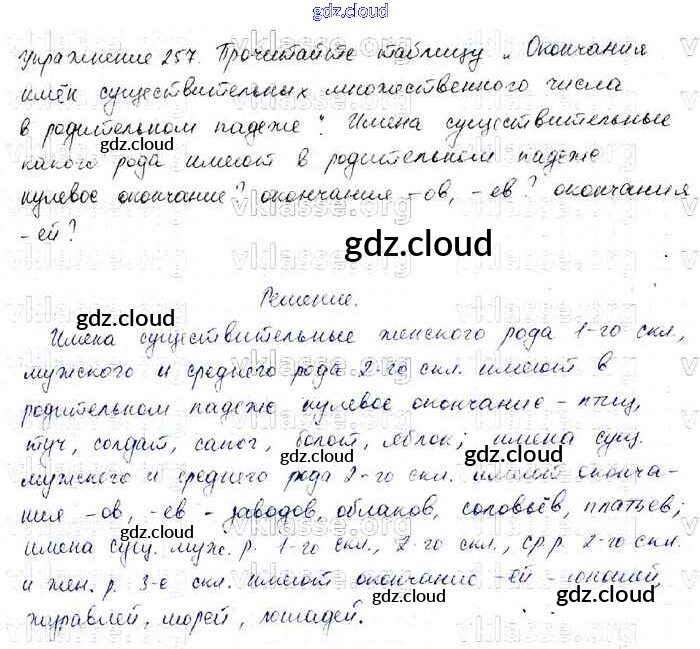 gdz.cloud
Упражнение 257. Прочитайте таблицу „Окончания
имён существительных множественного числа
в родительном падеже". Имена существительные
gdz.cloud
какого рода имеют в родительном падеже
нулевое окончание? окончания -ов, -ев? окончания
-ей?
gdz.cloud
Решение.
gdz.cloud
Имена существительные женского рода 1-го скл.,
мужского и среднего рода 2-го скл. имеют в
gdz.cloud
родительном падеже нулевое окончание - птиц,
туч, солдат, сапог, болот, яблок; имена сущ.
gdz.cloud gdz.cloud
мужского и среднего рода 2-го скл. имеют оконча-
ния -ов, -ев - заводов, облаков, соловьёв, платьев;
gdz.cloud
имена сущ. муж. р. 1-го скл., 2-го скл., ср.р. 2-го скл.
и жен. р. 3-е скл. имеют окончание -ей - юношей,
gdz.cloud gdz.cloud
журавлей, морей, лошадей.
vklasse.org